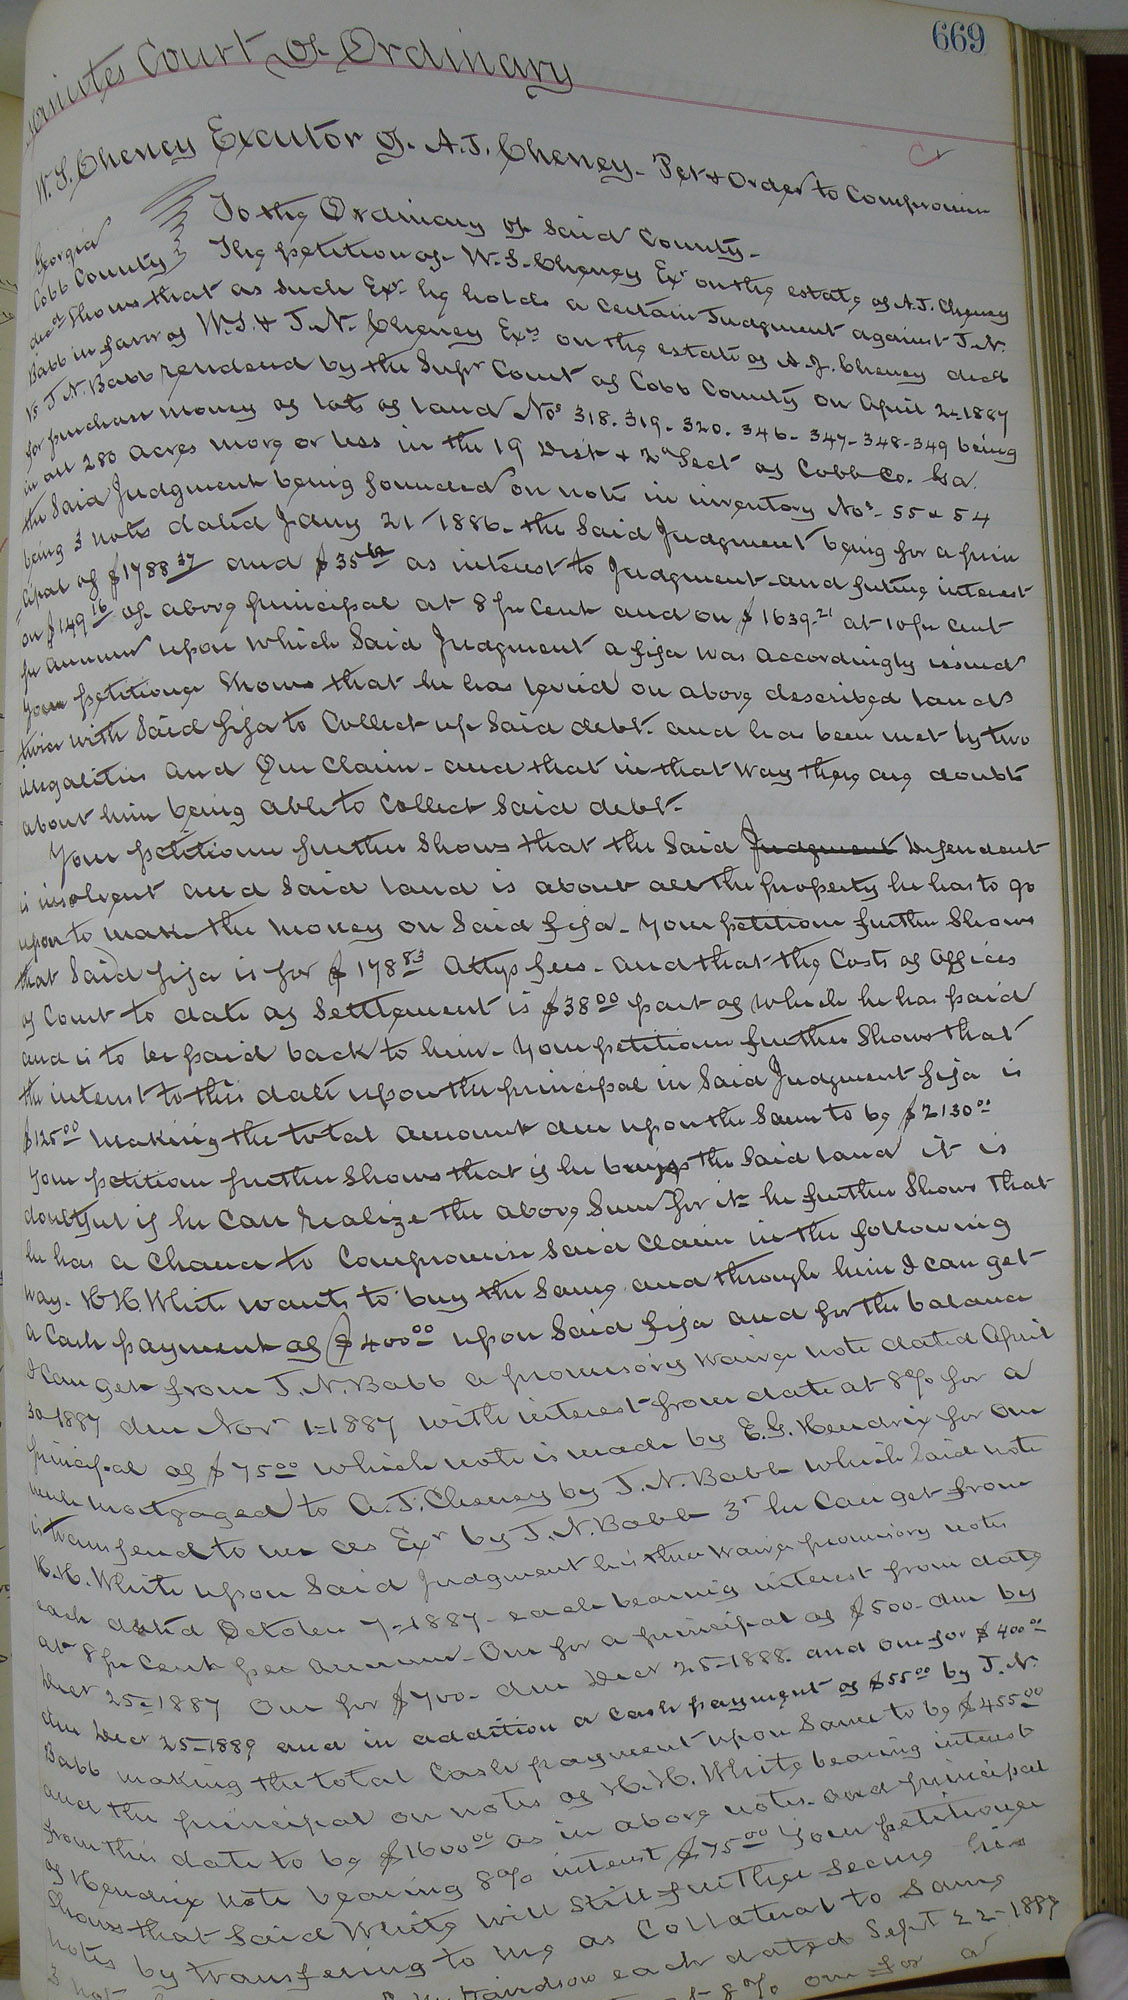 669
Minutes Court of Ordinary
Cr
W. S. Cheney Excutor of A. J. Cheney - Pet & Order to Compromise
Georgia
Cobb County
To the Ordinary of Said County.
The petition of W. S. Cheney Exr on the estate of A. J. Cheney
decd Shows that as such Exr he holds a certain Judgment against J. N.
Babb in favor of W. S. & J. N. Cheney Exrs on the estate of A. J. Cheney decd
vs J. N. Babb rendered by the Supr Court of Cobb County on April 2-1887
for purchase money of lots of land Nos 318. 319- 320. 346- 347- 348- 349 being
in all 280 acres more or less in the 19 Dist & 2d Sect of Cobb Co. Ga.
the Said Judgment being founded on note in inventory Nos- 55 & 54
being 3 notes dated Jany 21/1886- the Said Judgment being for a prin
cipal of $1788 37 and $35 as interest to Judgment and future interest
on $149 16 of above principal at 8 pr cent and on $1639.21 at 10 pr cent
pr annum upon which Said Judgment a fifa was accordingly issued
Your petitioner Shows that he has levied on above described lands
twice with Said fifa to Collect up Said debt. and has been met by two
illegalities and One Claim - and that in that way there are doubts
about him being able to Collect Said debt.
Your petitioner further Shows that the Said Judgment Defendent
is insolvent and Said land is about all the property he has to go
upon to make the money on Said fifa - Your petitioner further Shows
that Said fifa is for $178 83 Attys fees - and that the Costs of Offices
of Court to date of Settlement is $38 00 part of which he has paid
and is to be paid back to him - Your petitioner further Shows that
the interest to this date upon the principal in Said Judgment fifa is
$125 00 making the total amount due upon the Same to be $2130 00
Your petitioner further Shows that if he buys the Said land it is
doubtful if he Can realize the above Sum for it - he further Shows that
he has a chance to Compromise Said Claim in the following
way - H. H. White wants to buy the Same and through him I can get
a Cash payment of $400 00 upon Said fifa and for the balance
I Can get from J. N. Babb a promisory waive note dated April
30-1887 due Novr 1-1887 with interest from date at 8% for a
principal of $75 00 which note is made by E. G. Hendrix for one
mule mortgaged to A. J. Cheney by J. N. Babb which Said note
is transfered to me as Exr by J. N. Babb 3r he Can get from
H. H. White upon Said Judgment his three waive promisory notes
each dated October 7-1887- each bearing interest from date
at 8 pr Cent per annum - One for a principal of $500- due by
Decr 25-1887 One for $700- due Decr 25-1888. and one for $400 00
due Decr 25-1889 and in addition a Cash payment of $55 00 by J. N.
Babb making the total Cash payment upon Same to be $455 00
and the principal on notes of H. H. White bearing interest
from this date to be $1600 00 as in above notes - and principal
of Hendrix note bearing 8% interest $75 00 Your petitioner
Shows that Said White will Still further Secure his
notes by transfering to me as Collateral to Same
3 not Davidson each dated Sept 22-1887
at 8% one for a